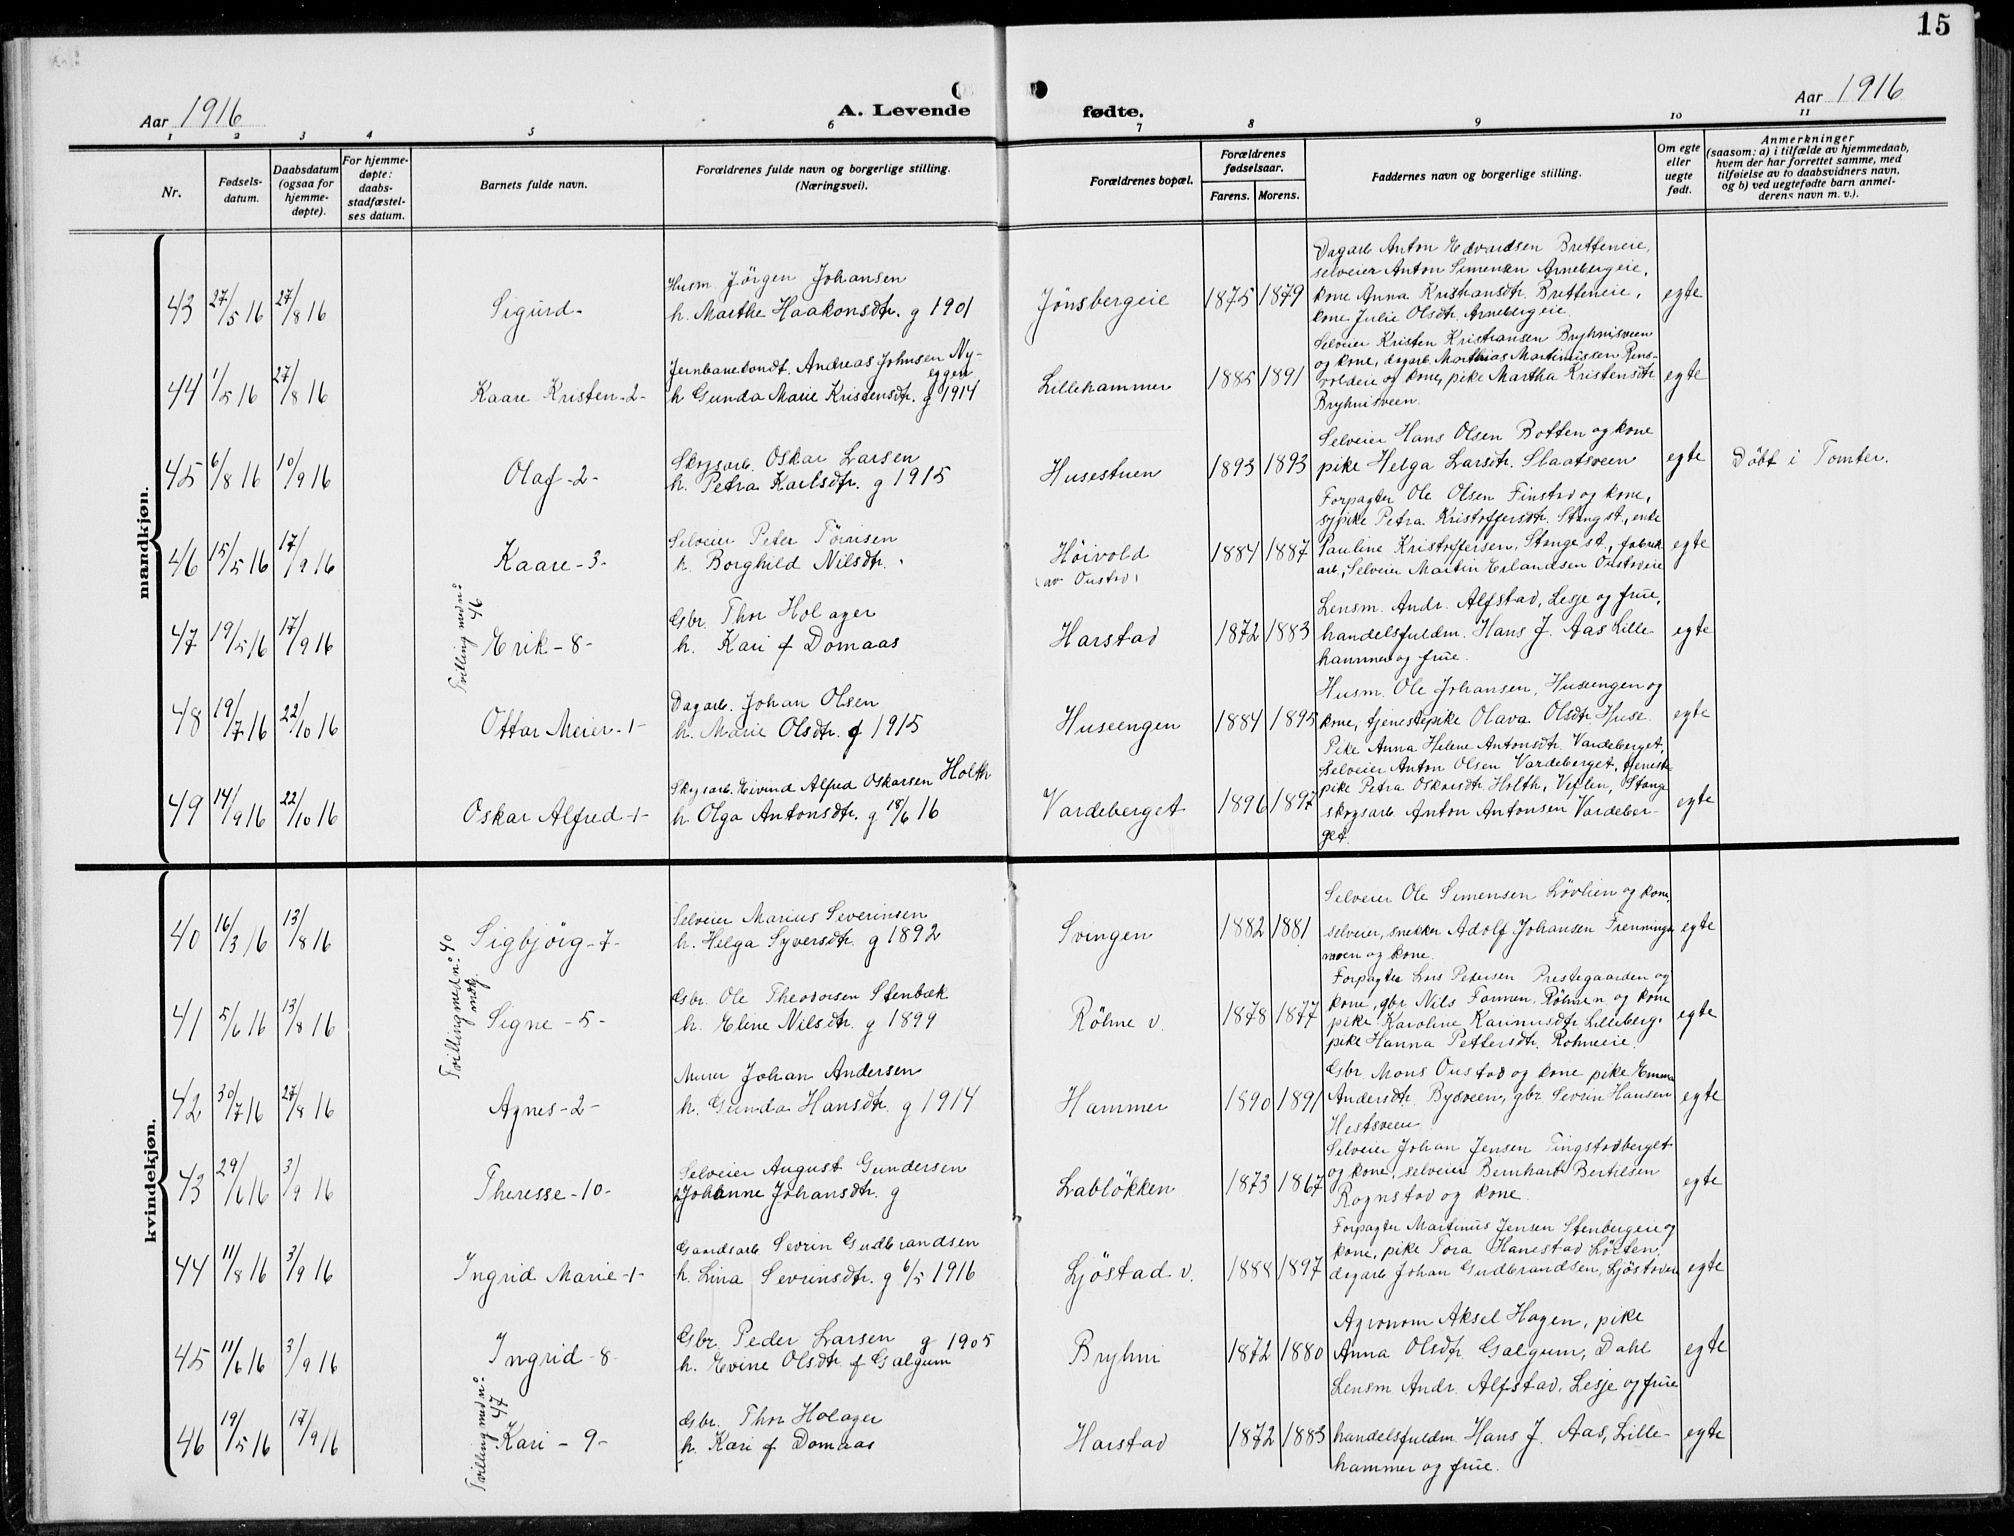 15
Aar 1916
A. Levende
fødte.
Aar 1916
1 2 3 4 5 6 7 8 9 10 11
Nr.
Fødsels-
datum.
Daabsdatum
(ogsaa for
hjemme-
døpte).
For hjemme-
døpte:
daabs-
stadfæstel-
ses datum.
Barnets fulde navn.
Forældrenes fulde navn og borgerlige stilling.
(Næringsvei).
Forældrenes bopæl.
Forældrenes
fødselsaar.
Farens. Morens.
Faddernes navn og borgerlige stilling.
Om egte
eller
uegte
født.
Anmerkninger
(saasom: a) i tilfælde av hjemmedaab,
hvem der har forrettet samme, med
tilføielse av to daabsvidners navn,
og b) ved uegtefødte barn anmel-
derens navn m. v.).
mandkjøn.
43 27/5 16 27/8 16 Sigurd-
Husm. Jörgen Johansen
h. Marthe Haakonsdtr. g 1901
Jönsbergeie 1875 1879
Dagarb Anton Edvardsen Bretteneie,
selveier Anton Simensen Arnebergeie,
kone Anna Kristiansdtr. Bretteneie,
kone Julie Olsdtr. Arnebergeie
egte
44 1/5 16 27/8 16 Kaare Kristen-2-
Jernbanetondt. Andreas Johnsen Ny-
eggen
h Gunda Marie Kristensdtr. g 1914
Lillehammer 1885 1891
Selveier Kristen Kristiansen Bryhnisveen
og kone, dagarb. Marthias Martinussen Rens-
voldeie og kone, pike Martha Kristensdtr
Bryhnisveen.
egte
45 6/8 16 10/9 16 Olaf-2-
Skogsarb. Oskar Larsen
h. Petra Karlsdtr. g 1915
Husestuen 1893 1893
Selveier Hans Olsen Botten og kone
pike Helga Larsdtr. Slaatsveen
egte Döbt i Tomter.
46 15/5 16 17/9 16 Kaare-3-
Selveier Peter Törrisen
h. Borghild Nilsdtr.
Höivold
(av Oustad)
1884 1887
Forpagter Ole Olsen Finstad og kone,
sypike Petra Kristoffersdtr. Stange st., enke
Pauline Kristoffersen, Stange st., fabrik
arb., Selveier Martin Erlandsen Oustadeie
egte
Tvilling med no
46
47 19/5 16 17/9 16 Erik-8-
Gbr. Thor Holager
h. Kari f Domaas
Harstad 1872 1883
Lensm. Andr. Alfstad, Lesje og frue,
handelsfuldm. Hans J. Aas Lille
hammer og frue.
egte
48 19/7 16 22/10 16 Ottar Meier-1-
Dagarb. Johan Olsen
h. Marie Olsdtr. g 1915
Huseengen 1884 1895
Husm. Ole Johansen, Huseengen og
kone, tjenestepike Olava Olsdtr. Huse.
egte
49 14/9 16 22/10 16 Oskar Alfred-1-
Skogsarb. Eivind Alfred Oskarsen Holth
h. Olga Antonsdtr. g 18/6 16
Vardeberget 1896 1897
Pike Anna Helene Antonsdtr. Vardeberget,
selveier Anton Olsen Vardeberget, tjeneste
pike Petra Oskarsdtr. Holth, Veflen, Stange
skogsarb. Anton Antonsen Vardeber-
get.
egte
kvindekjøn.
40 16/3 16 13/8 16 Sigbjörg-7-
Selveier Marius Severinsen
h. Helga Syversdtr. g 1892
Svingen 1882 1881
Selveier Ole Simensen Lövlien og kone,
selveier, snekker Adolf Johansen Frenninge
moen og kone.
egte
Tvilling med no 40
mdkj.
41 5/6 16 13/8 16 Signe-5-
Gbr. Ole Theodorsen Stenbæk
h. Eline Nilsdtr. g 1899
Röhne v. 1878 1877
Forpagter Lars Pedersen Prestegaarden og
kone, gbr Nils Fonnen, Röhne n. og kone
pike Karoline Karinusdtr. Lilleberg,
pike Hanna Pettersdtr. Röhneeie.
egte
42 30/7 16 27/8 16 Agnes-2-
Murer Johan Andersen
h. Gunda Hansdtr. g 1914
Hammer 1890 1891
Gbr Mons Oustad og kone pike Emma
Andersdtr. Bydveen, gbr. Sevrin Hansen
Hestsveen
egte
43 29/6 16 3/9 16 Theresse-10-
Selveier August Gundersen
h Johanne Johansdtr. g
Lablökken 1873 1867
Selveier Johan Jensen Tingstadberget
og kone, selveier Bernhart Bertilsen
Rognstad og kone.
egte
44 11/8 16 3/9 16 Ingrid Marie-1-
Gaardsarb. Sevrin Gudbrandsen
h. Lina Sevrinsdtr. g 6/5 1916
Ljöstad v. 1888 1897
Forpagter Martinus Jensen Stenbergeie og
kone, pike Tora Hanestad Löiten,
dagarb Johan Gudbrandsen, Ljöstadvee
egte
45 11/6 16 3/9 16 Ingrid-8-
Gbr. Peder Larsen g 1905
h. Evine Olsdtr. f Galgum
Bryhni 1872 1880
Agronom Aksel Hagen, pike
Anna Olsdtr. Galgum, Dahl
egte
Tvilling med no
47
46 19/5 16 17/9 16 Kari-9-
Gbr. Thor Holager
h. Kari f Domaas
Harstad 1872 1883
Lensm Andr. Alfstad, Lesje og frue
handelsfuldm Hans J. Aas, Lille-
hammer og frue.
egte